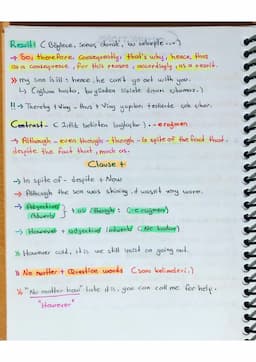 Result! (Böylece, sonuç olarak, bu sebeple...)
→ So, therefore, consequently, that's why, hence, thus
as a consequence, for this reason, accordingly, as a result.
» my son is ill ; hence, he can't go out with you.
↳ Oğlum hasta, bu yüzden sizinle dışarı çıkamaz.)
!! → Thereby + Ving - thus + Ving yapıları testlerde çok çıkar.
Contrast - (Zıtlık belirten bağlaçlar) -- e rağmen
→ Although - even though - though - in spite of the fact that
despite the fact that, much as.
Clause +
→ In spite of - despite + Noun
→ Although the sun was shining, it wasn't very warm.
→ Adjective / Adverb } + as / though : (-e rağmen)
→ However + adjective / adverb (Ne kadar)
» However cold, it is we still insist on going out.
» No matter + Question words (soru kelimeleri)
» "No matter how" late it is, you can call me for help.
"However"